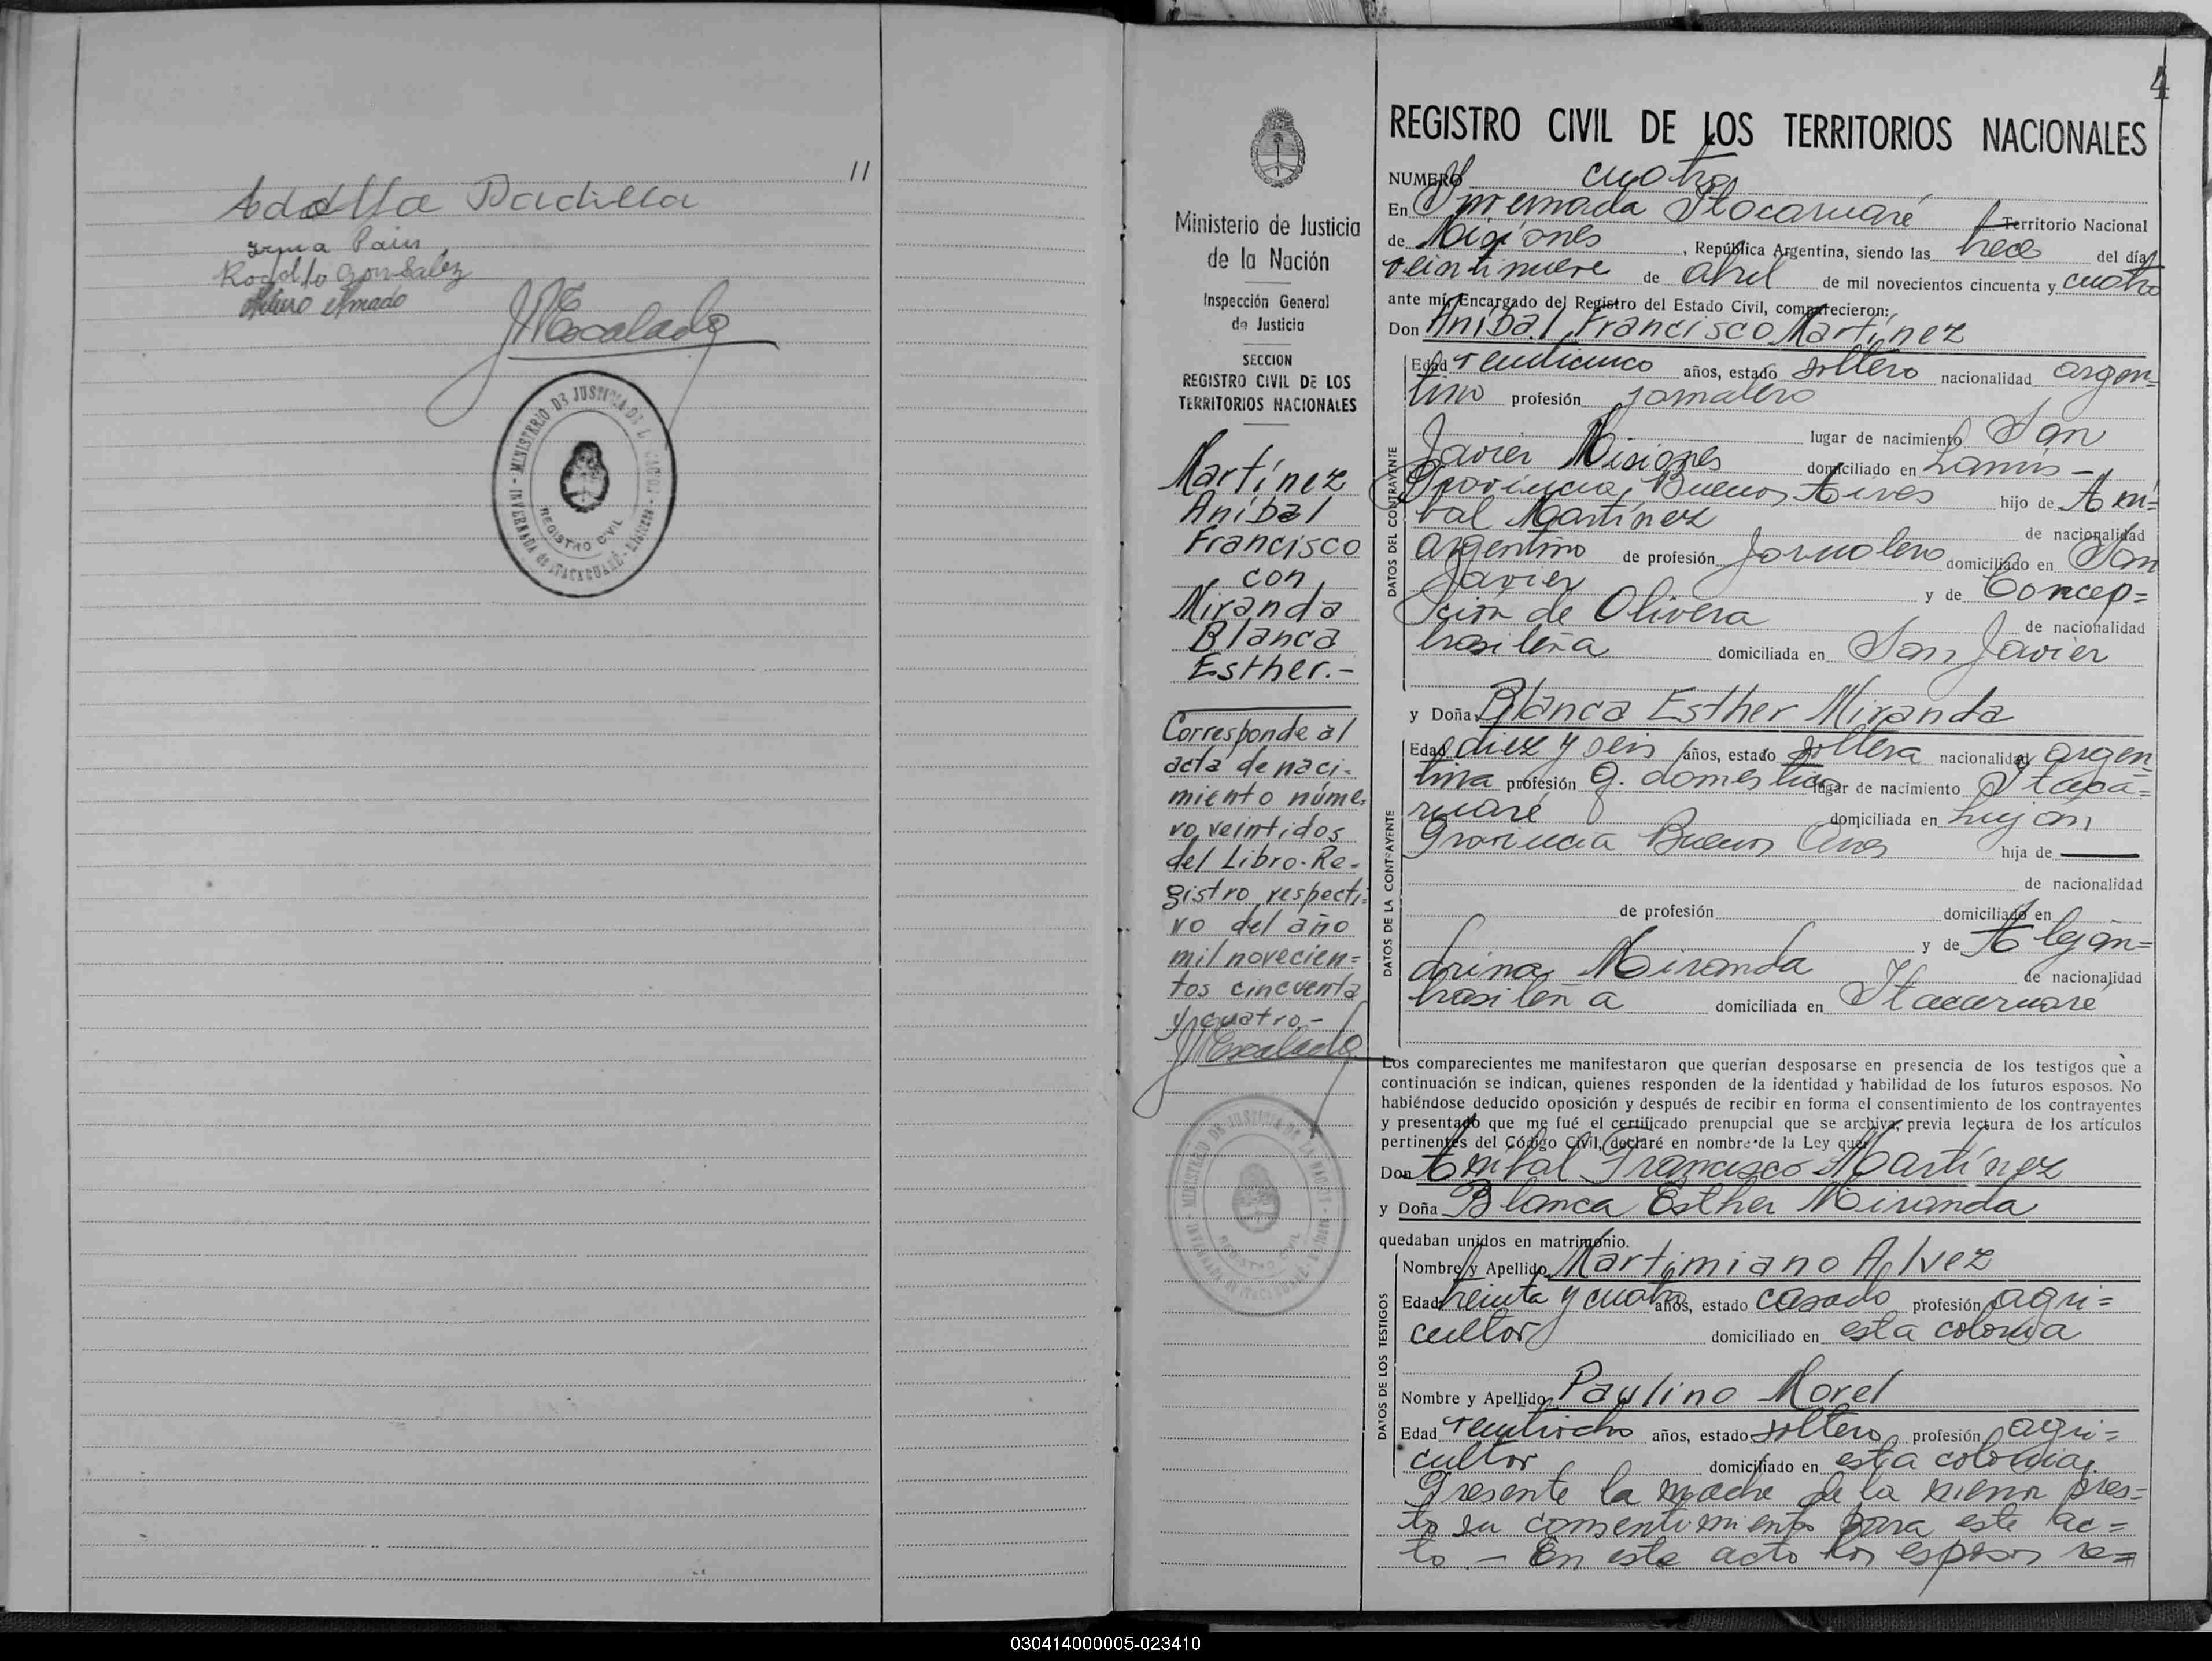 11
Adolfa Padilla
Irma Pain
Rodolfo Gonsalez
Arturo Amado
JMEscalada
MINISTERIO DE JUSTICIA DE LA NACION
REGISTRO CIVIL
INVERNADA de ITACARUARÉ - Misiones
4
Ministerio de Justicia
de la Nación
Inspección General
de Justicia
SECCION
REGISTRO CIVIL DE LOS
TERRITORIOS NACIONALES
Martínez
Aníbal
Francisco
con
Miranda
Blanca
Esther.-
Corresponde al
acta de naci-
miento núme-
ro veintidos
del Libro-Re-
gistro respecti-
vo del año
mil novecien=
tos cincuenta
y cuatro.-
JMEscalada
MINISTERIO DE JUSTICIA DE LA NACION
REGISTRO CIVIL
INVERNADA de ITACARUARÉ - Misiones
REGISTRO CIVIL DE LOS TERRITORIOS NACIONALES
NUMERO cuatro
En Invernada Itacaruaré Territorio Nacional
de Misiones, República Argentina, siendo las trece del día
veintinueve de abril de mil novecientos cincuenta y cuatro
ante mí, Encargado del Registro del Estado Civil, comparecieron:
Don Aníbal Francisco Martínez
DATOS DEL CONTRAYENTE
Edad veinticinco años, estado soltero nacionalidad argen=
tino profesión jornalero
lugar de nacimiento San
Javier Misiones domiciliado en Lanús -
Provincia Buenos Aires hijo de Aní=
bal Martínez de nacionalidad
argentino de profesión Jornalero domiciliado en San
Javier y de Concep=
ción de Olivera de nacionalidad
brasileña domiciliada en San Javier
y Doña Blanca Esther Miranda
DATOS DE LA CONTRAYENTE
Edad diez y seis años, estado soltera nacionalidad argen
tina profesión q. domestica lugar de nacimiento Itaca=
ruaré domiciliada en Luján,
Provincia Buenos Aires hija de ———
de nacionalidad
de profesión domiciliado en
y de Alejan=
drina Miranda de nacionalidad
brasileña domiciliada en Itacaruaré
Los comparecientes me manifestaron que querían desposarse en presencia de los testigos que a
continuación se indican, quienes responden de la identidad y habilidad de los futuros esposos. No
habiéndose deducido oposición y después de recibir en forma el consentimiento de los contrayentes
y presentado que me fué el certificado prenupcial que se archiva, previa lectura de los artículos
pertinentes del Código Civil, declaré en nombre de la Ley que:
Don Aníbal Francisco Martínez
y Doña Blanca Esther Miranda
quedaban unidos en matrimonio.
DATOS DE LOS TESTIGOS
Nombre y Apellido Martimiano Alvez
Edad treinta y cuatro años, estado casado profesión agri=
cultor domiciliado en esta colonia
Nombre y Apellido Paulino Morel
Edad veintiocho años, estado soltero profesión agri=
cultor domiciliado en esta colonia.
Presente la madre de la menor pres=
to su consentimiento para este ac=
to - En este acto los esposos re=
030414000005-023410